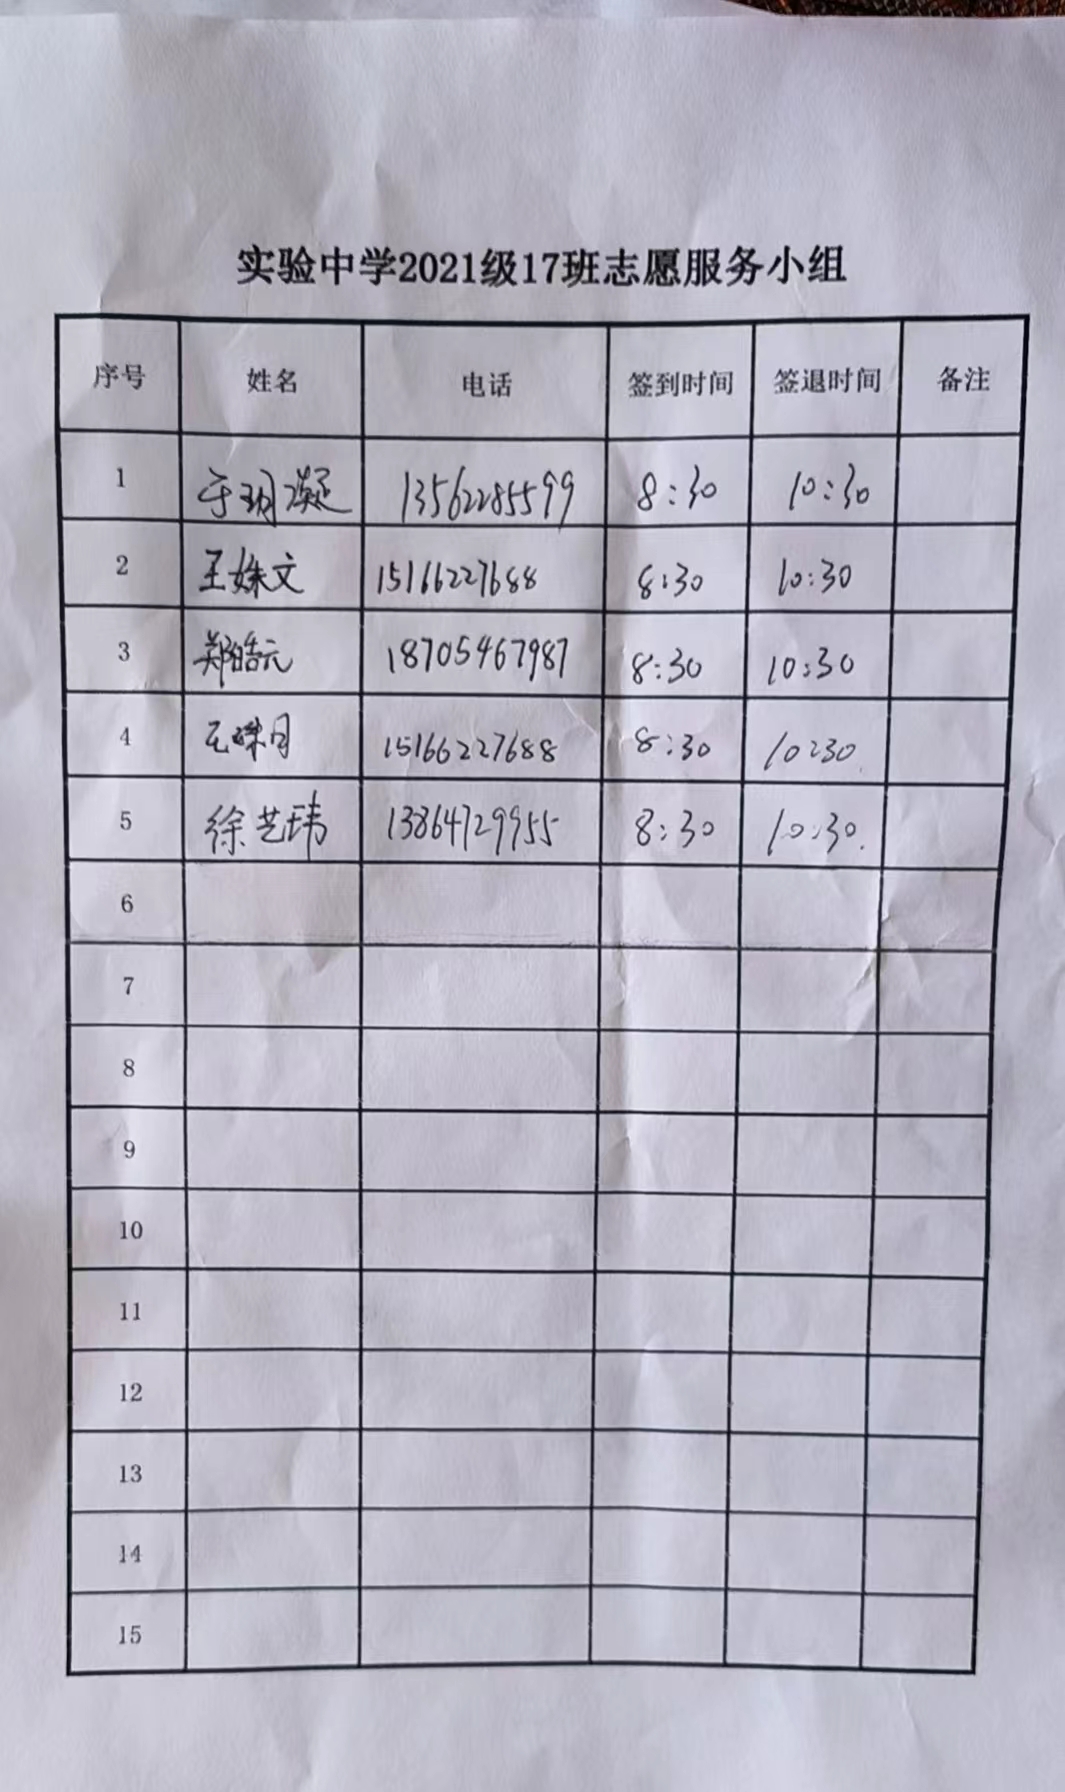 实验中学2021级17班志愿服务小组
序号 姓名 电话 签到时间 签退时间 备注
1 于玥凝 13562285599 8:30 10:30
2 王姝文 15166227688 8:30 10:30
3 郑皓元 18705467987 8:30 10:30
4 15166227688 8:30 10:30
5 徐艺玮 13864729955 8:30 10:30.
6
7
8
9
10
11
12
13
14
15